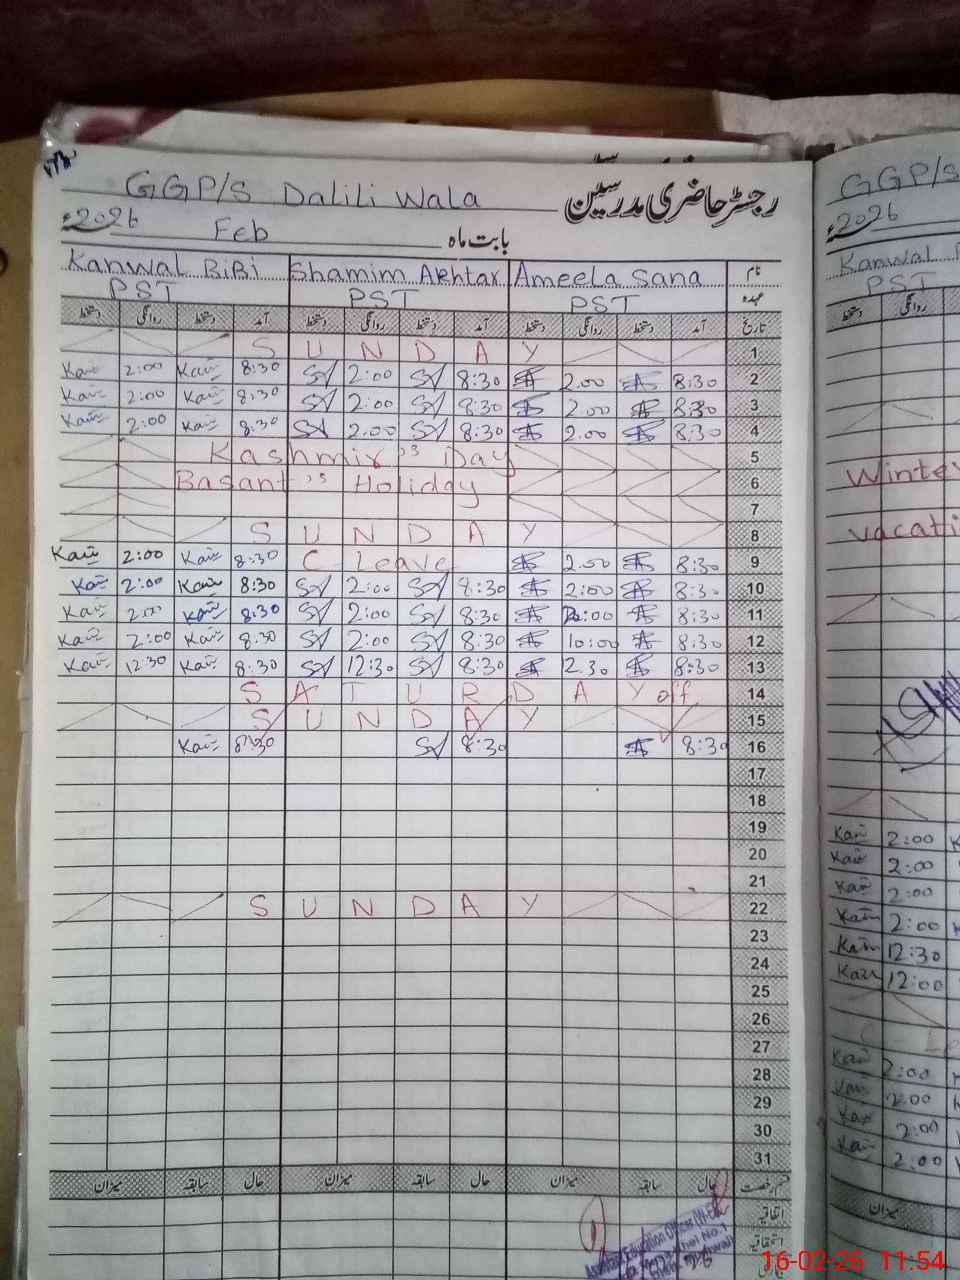 GGP/S Dalili Wala رجسٹر حاضری مدرسین
2026ء Feb بابت ماہ
Kanwal BiBi Shamim Akhtar Ameela Sana نام
PST PST PST عہدہ
دستخط روانگی دستخط آمد دستخط روانگی دستخط آمد دستخط روانگی دستخط آمد تاریخ
S U N D A Y 1
2:00 8:30 2:00 8:30 2.00 8:30 2
2:00 8:30 2:00 8:30 2.00 8:30 3
2:00 8:30 2.00 8:30 2.00 8:30 4
Kashmir's Day 5
Basant's Holiday 6
7
S U N D A Y 8
2:00 8:30 C Leave 2.00 8:30 9
2:00 8:30 2:00 8:30 2:00 8:30 10
2:00 8:30 2:00 8:30 :00 8:30 11
2:00 8:30 2:00 8:30 10:00 8:30 12
12:30 8:30 12:30 8:30 2.30 8:30 13
S A T U R D A Y off 14
S U N D A Y 15
8:30 8:30 8:30 16
17
18
19
20
21
S U N D A Y 22
23
24
25
26
27
28
29
30
31
میزان سابقہ حال میزان سابقہ حال میزان سابقہ حال قسم رخصت
اتفاقیہ
استحقاقیہ
Education Officer
GGP/S
2026ء
Kanwal
PST
دستخط روانگی
Winter
vacati
2:00
2:00
2:00
2:00
12:30
12:00
2:00
2:00
2:00
2:00
میزان
16-02-26 11:54